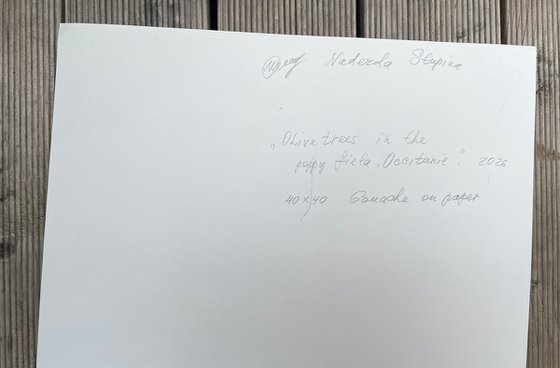 Nadezda Stupina
„Olive trees in the
poppy field, Occitanie". 2026
40 x 40 Gouache on paper